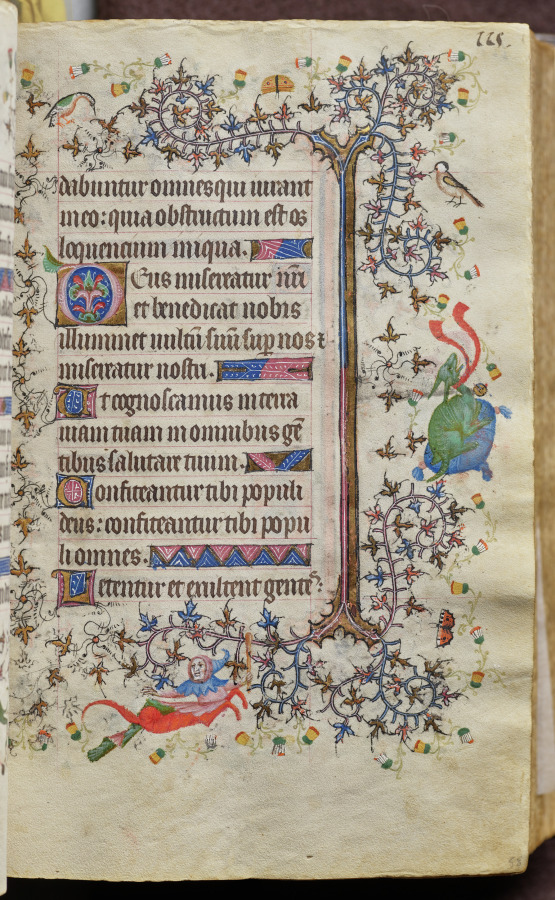 225.
dabuntur omnes qui iurant
in eo: quia obstructum est os
loquencium iniqua.
Deus misereatur nr̄i
et benedicat nobis
illuminet vultū suū suꝑ nos ⁊
misereatur nostri.
Et cognoscamus in terra
uiam tuam in omnibus gē
tibus salutare tuum.
Confiteantur tibi populi
deus: confiteantur tibi popu
li omnes.
Letentur et exultent gentes: